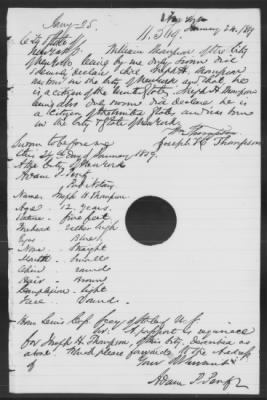 Jany 25.
January 24. 1859
11.569.
City & State of
New York SS. William Thompson of the City
of New York being by me duly sworn did
depose & declare that Joseph H. Thompson
was born in the City of New York and that he
is a citizen of the United States, Joseph H Thompson
being also duly sworn did declare he is
a citizen of the United States and was born
in the City & State of New York
Wm Thompson
Joseph H Thompson
Sworn to before me
this 24th day of January 1859.
at the City of New York
Notary
Name Joseph H Thompson
Age - 12 years
Stature - five feet
Forehead rather high
Eyes Blue
Nose Straight
Mouth - Small
Chin round
Hair - Brown
Complexion - light
Face Round -
Hon Lewis Cass Secy of State U. S.
Sir: A passport is required
for Joseph H Thompson, of this City, Described as
above. Which please forward to the address
of Your Obt Servant